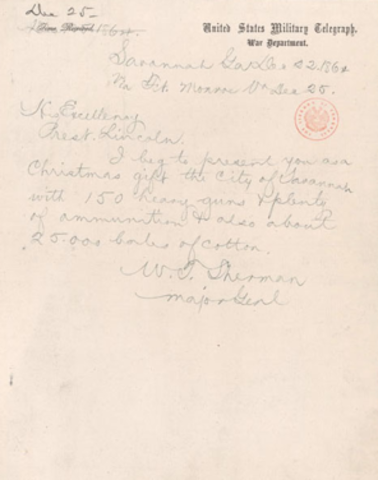 Dec 25-
United States Military Telegraph,
Time Received 1864.
War Department.
Savannah Ga Dec 22. 1864
Via Ft. Monroe Va Dec 25.
His Excellency
Prest. Lincoln.
I beg to present you as a
Christmas gift the City of Savannah
with 150 heavy guns & plenty
of ammunition & also about
25.000 bales of cotton.
W. T. Sherman
Major Genl